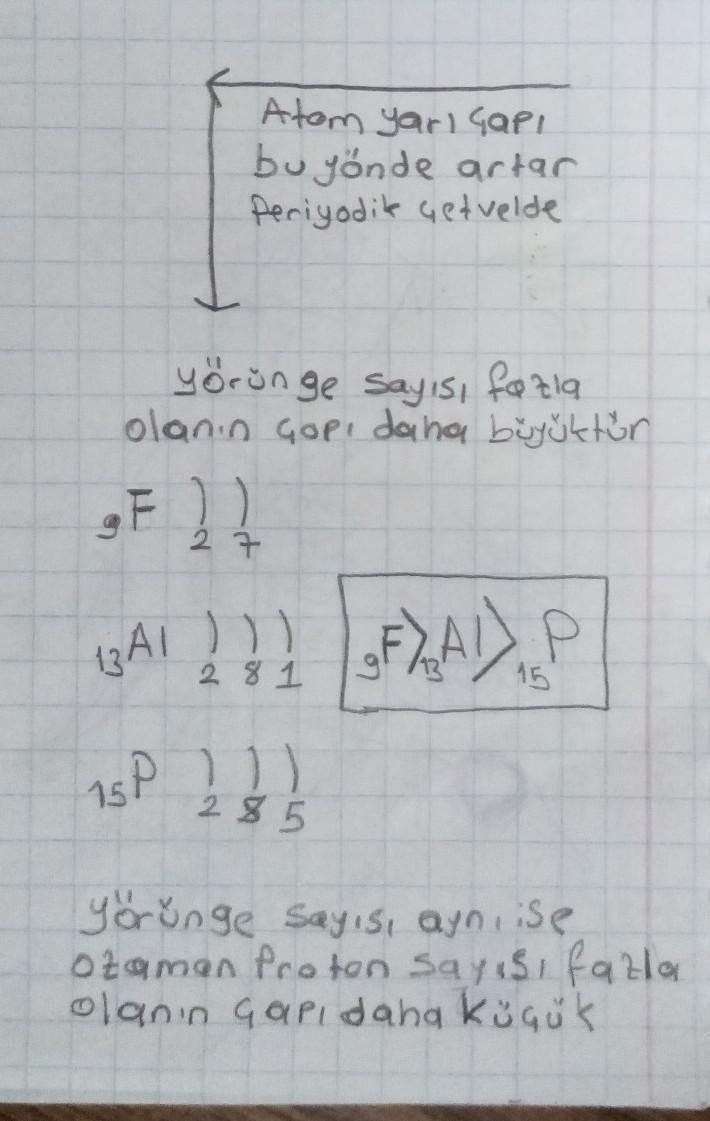 Atom yarı çapı
bu yönde artar
Periyodik çetvelde
yörünge sayısı fazla
olanın çapı daha büyüktür
9F ) )
2 7
13Al ) ) )
2 8 1
9F > 13Al > 15P
15P ) ) )
2 8 5
yörünge sayısı aynı ise
ozaman Proton sayısı fazla
olanın çapı daha küçük